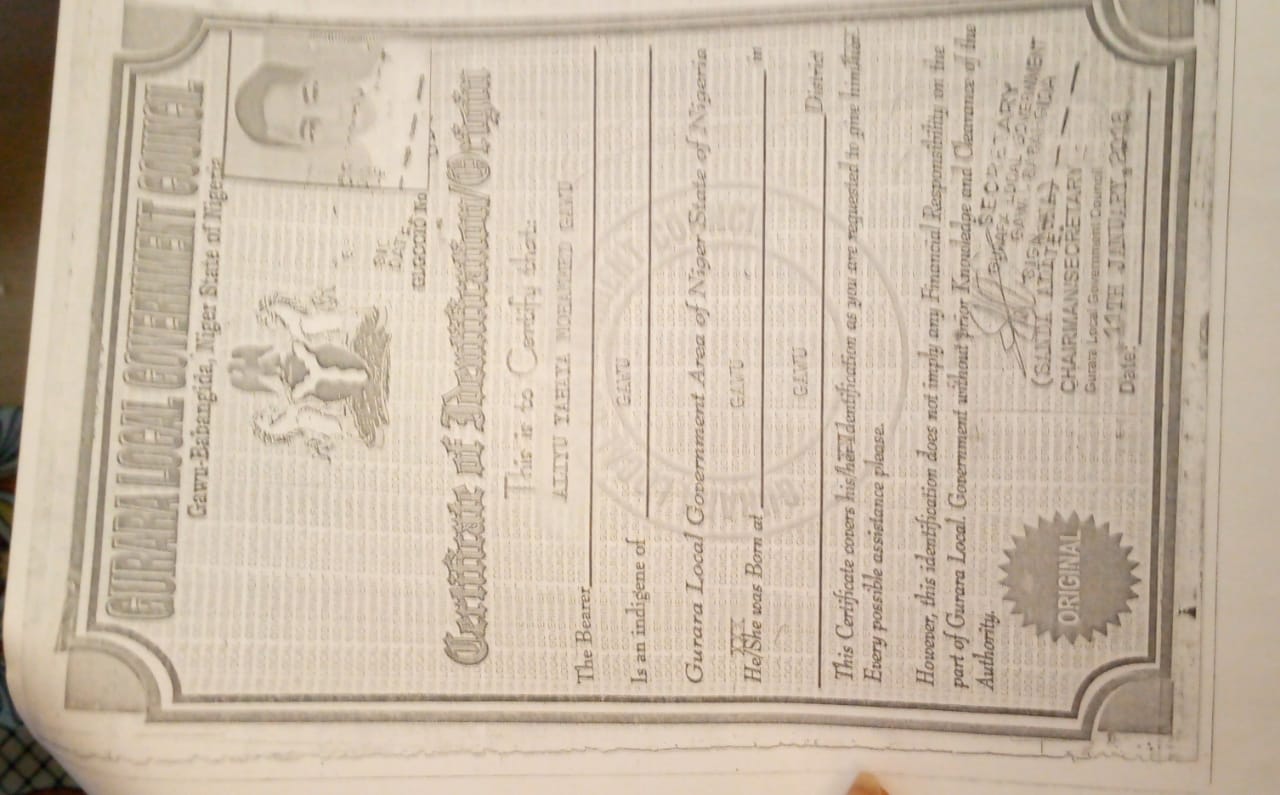 GURARA LOCAL GOVERNMENT COUNCIL
Gawu-Babangida, Niger State of Nigeria
Certificate of Identification/Origin
This is to Certify that:
The Bearer ALIYU YAHAYA MOHAMMED GAWU
Is an indigene of GAWU
Gurara Local Government Area of Niger State of Nigeria
He/She was Born at GAWU in
GAWU District
This Certificate covers his/her Identification as you are requested to give him/her
Every possible assistance please.
However, this identification does not imply any Financial Responsibility on the
part of Gurara Local. Government without prior Knowledge and Clearance of the
Authority.
SECRETARY
LOCAL GOVERNMENT
CHAIRMAN/SECRETARY
Gurara Local Government Council
Date: 11TH JANUARY, 2018
ORIGINAL